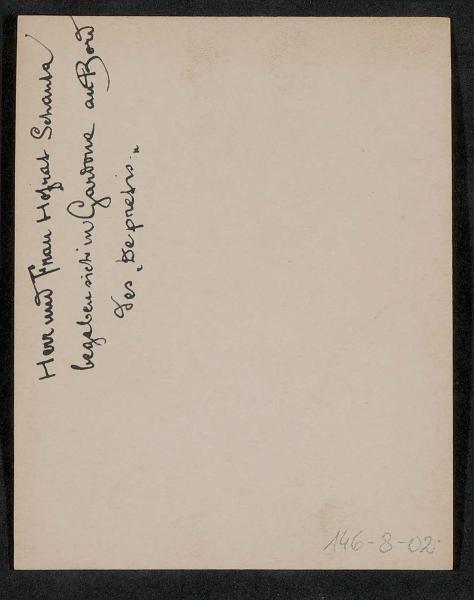 Herr und Frau Hofrat Schauta
begeben sich in Gardone an Bord
des „Depretis."
146-8-02